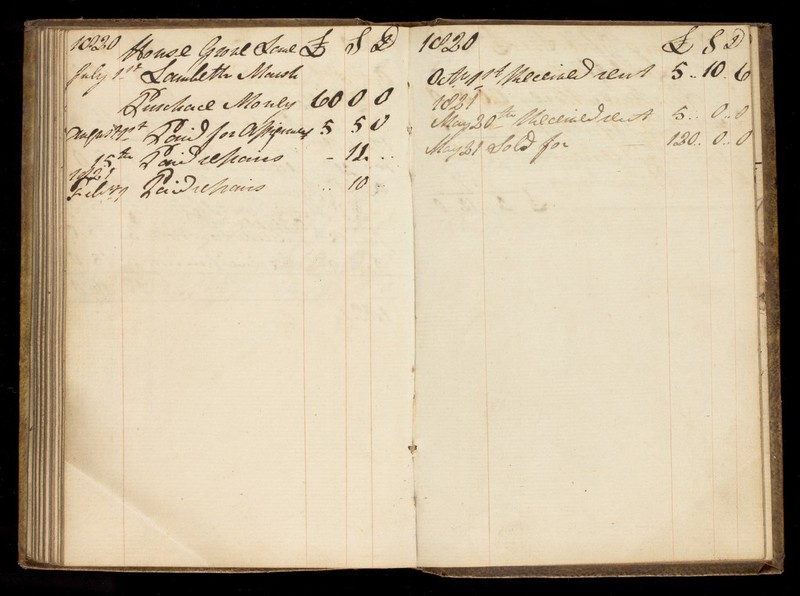 1820 House Grove Lane £ S D
July 1st Lambeth Marsh
Purchace Money 60 0 0
August 1st Paid for Assignment 5 5 0
15th Paid repairs - 12 ..
1821
Feb 9 Paid repairs .. 10
1820 £ S D
Octbr 1st Received rent 5.. 10.. 6
1821
May 20th Received rent 5.. 0.. 0
May 21 Sold for 120.. 0.. 0